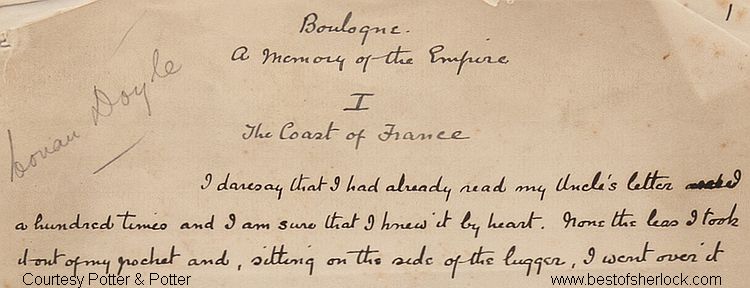 1
Boulogne.
A Memory of the Empire
I
Conan Doyle
The Coast of France
I daresay that I had already read my Uncle's letter
a hundred times and I am sure that I knew it by heart. None the less I took
it out of my pocket and, sitting on the side of the lugger, I went over it
Courtesy Potter & Potter
www.bestofsherlock.com